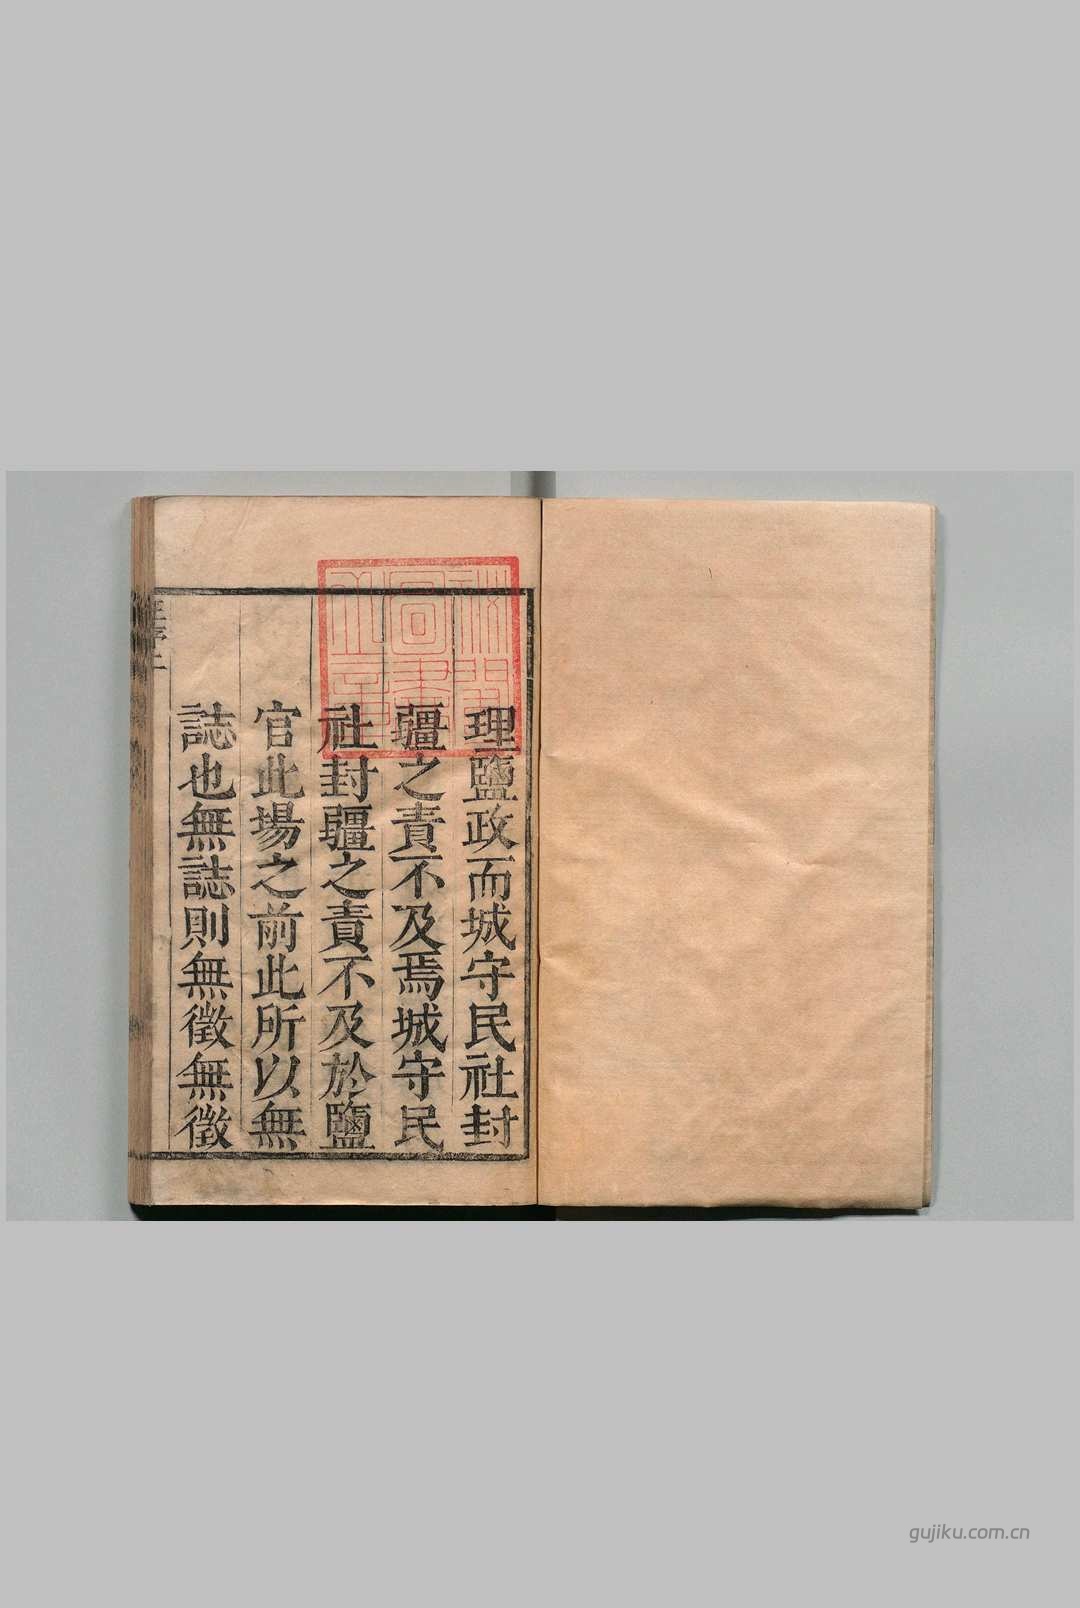 理鹽政而城守民社封
疆之責不及焉城守民
社封疆之責不及於鹽
官此場之前此所以無
誌也無誌則無徵無徵
gujiku.com.cn